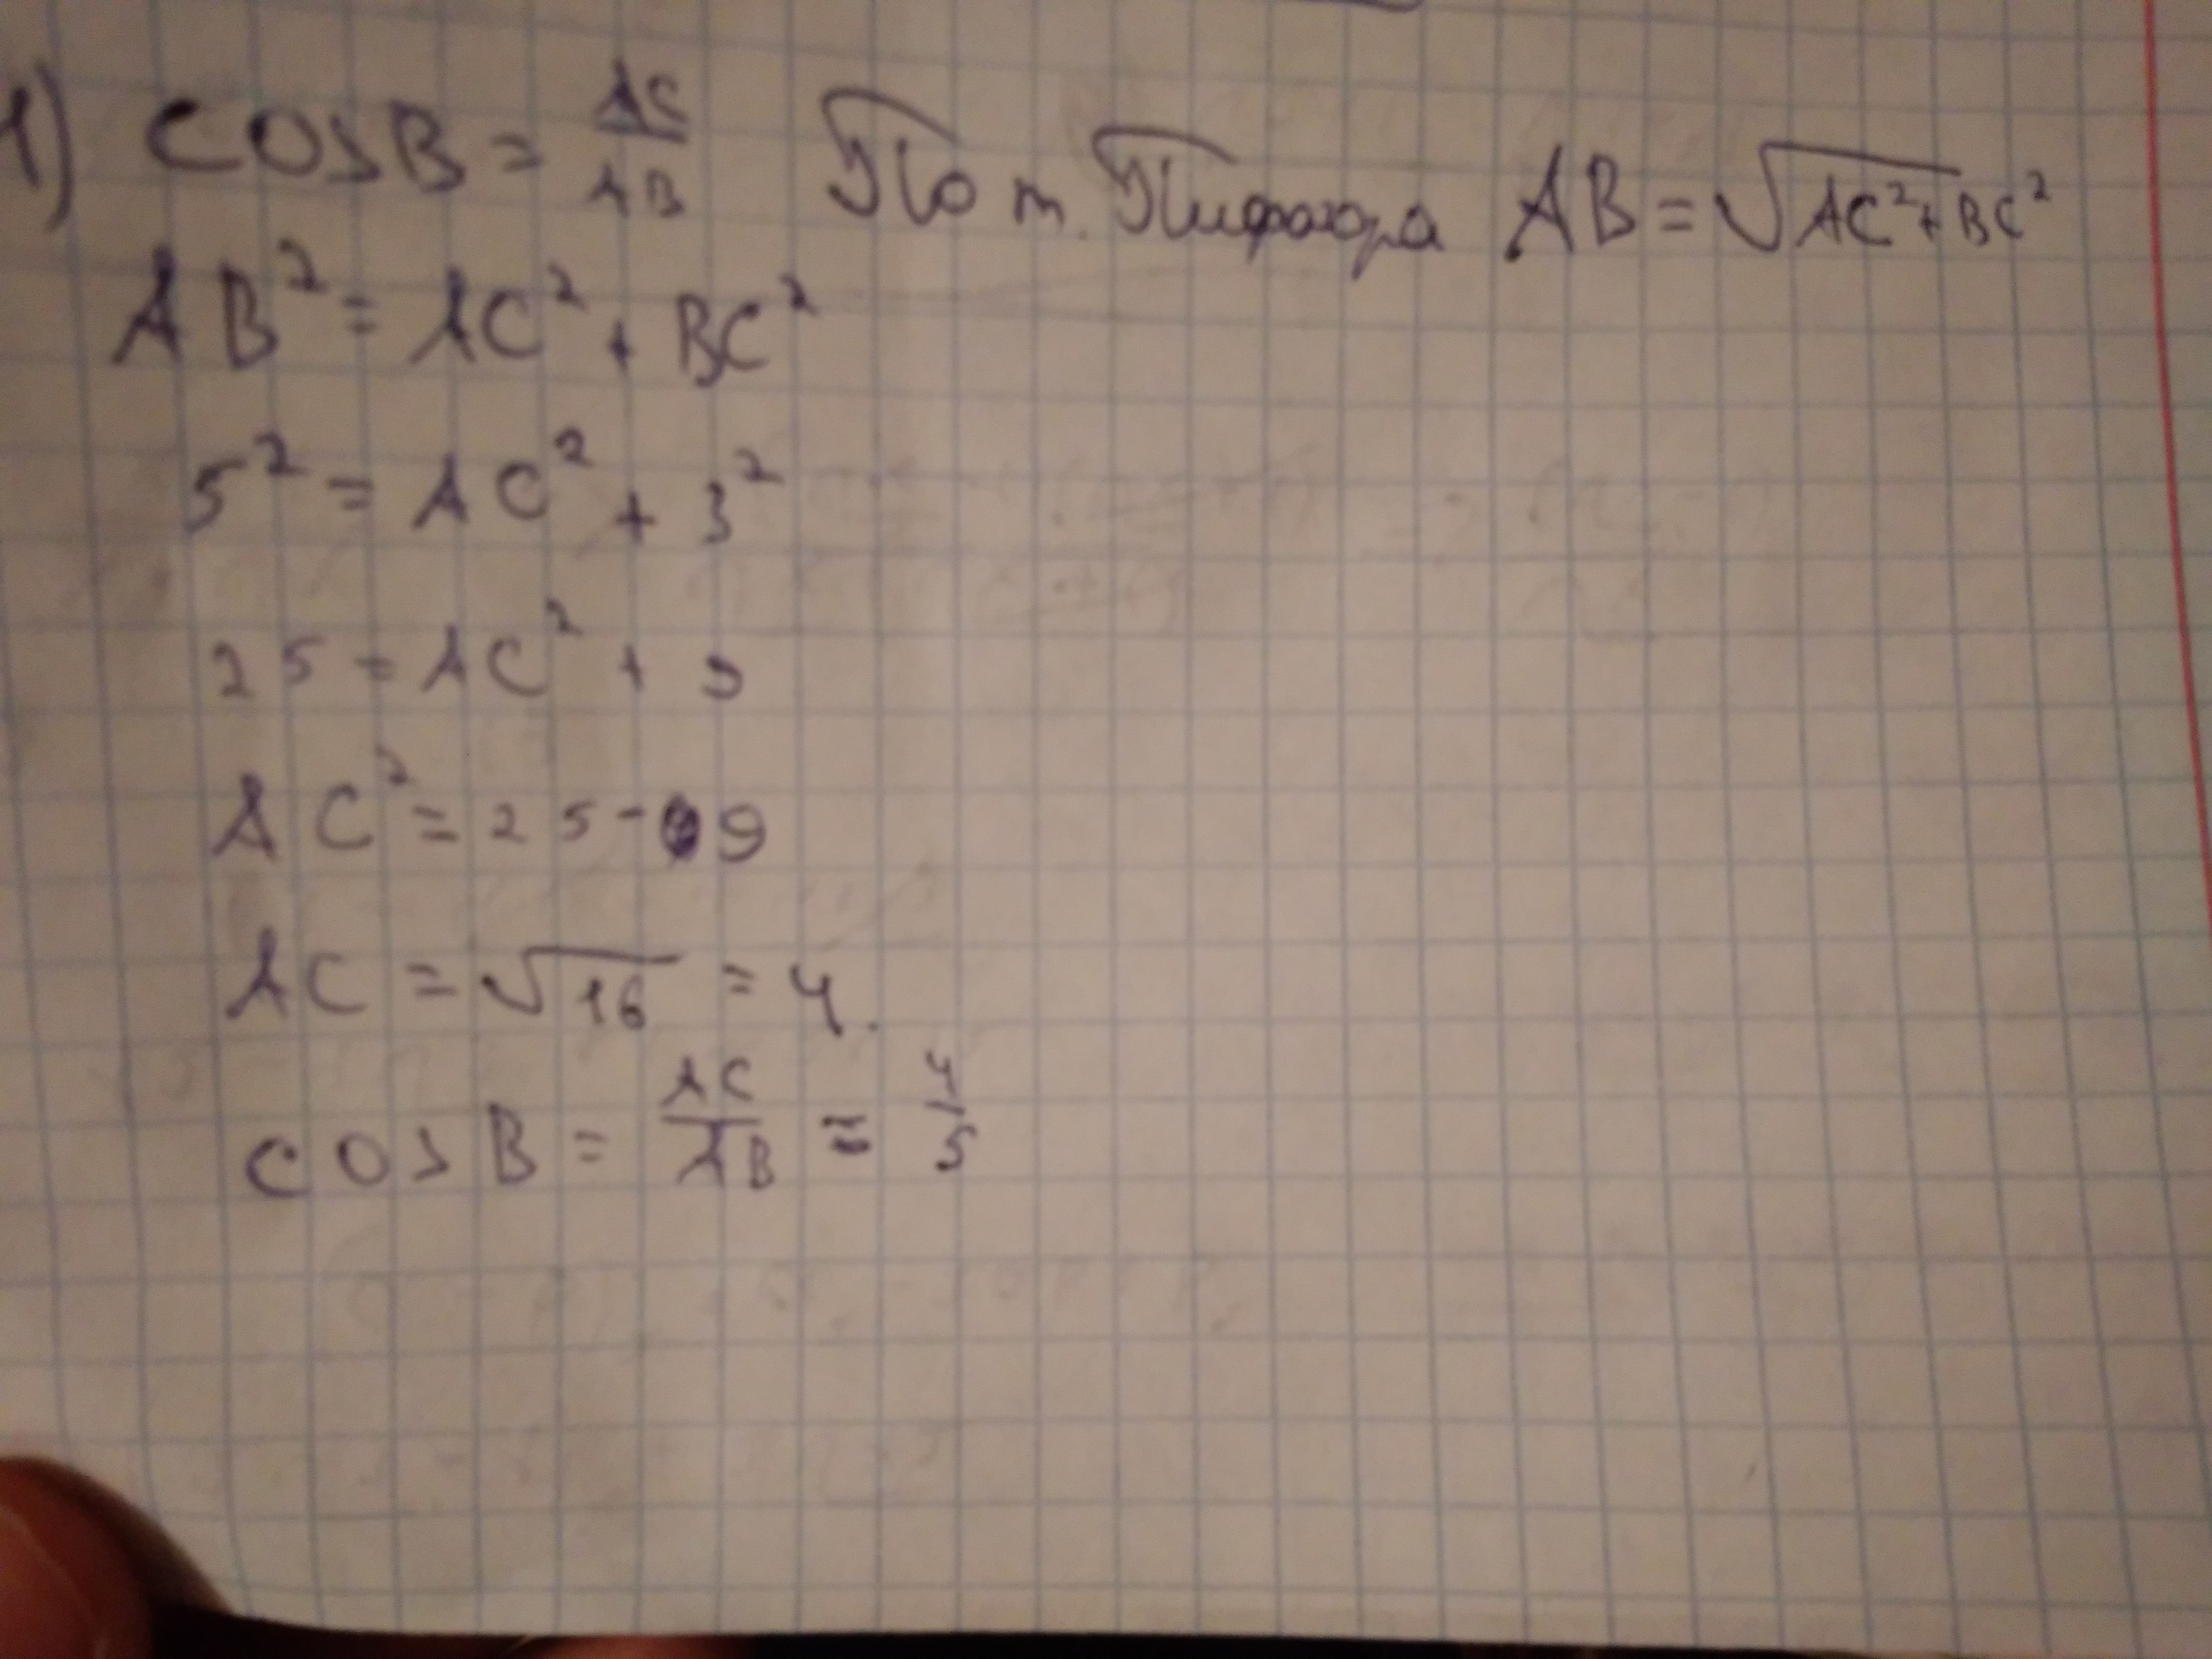 1) cosB = AC/AB По т. Пифагора AB = √AC²+BC²
AB² = AC² + BC²
5² = AC² + 3²
25 = AC² + 9
AC² = 25 - 9
AC = √16 = 4.
cosB = AC/AB = 4/5